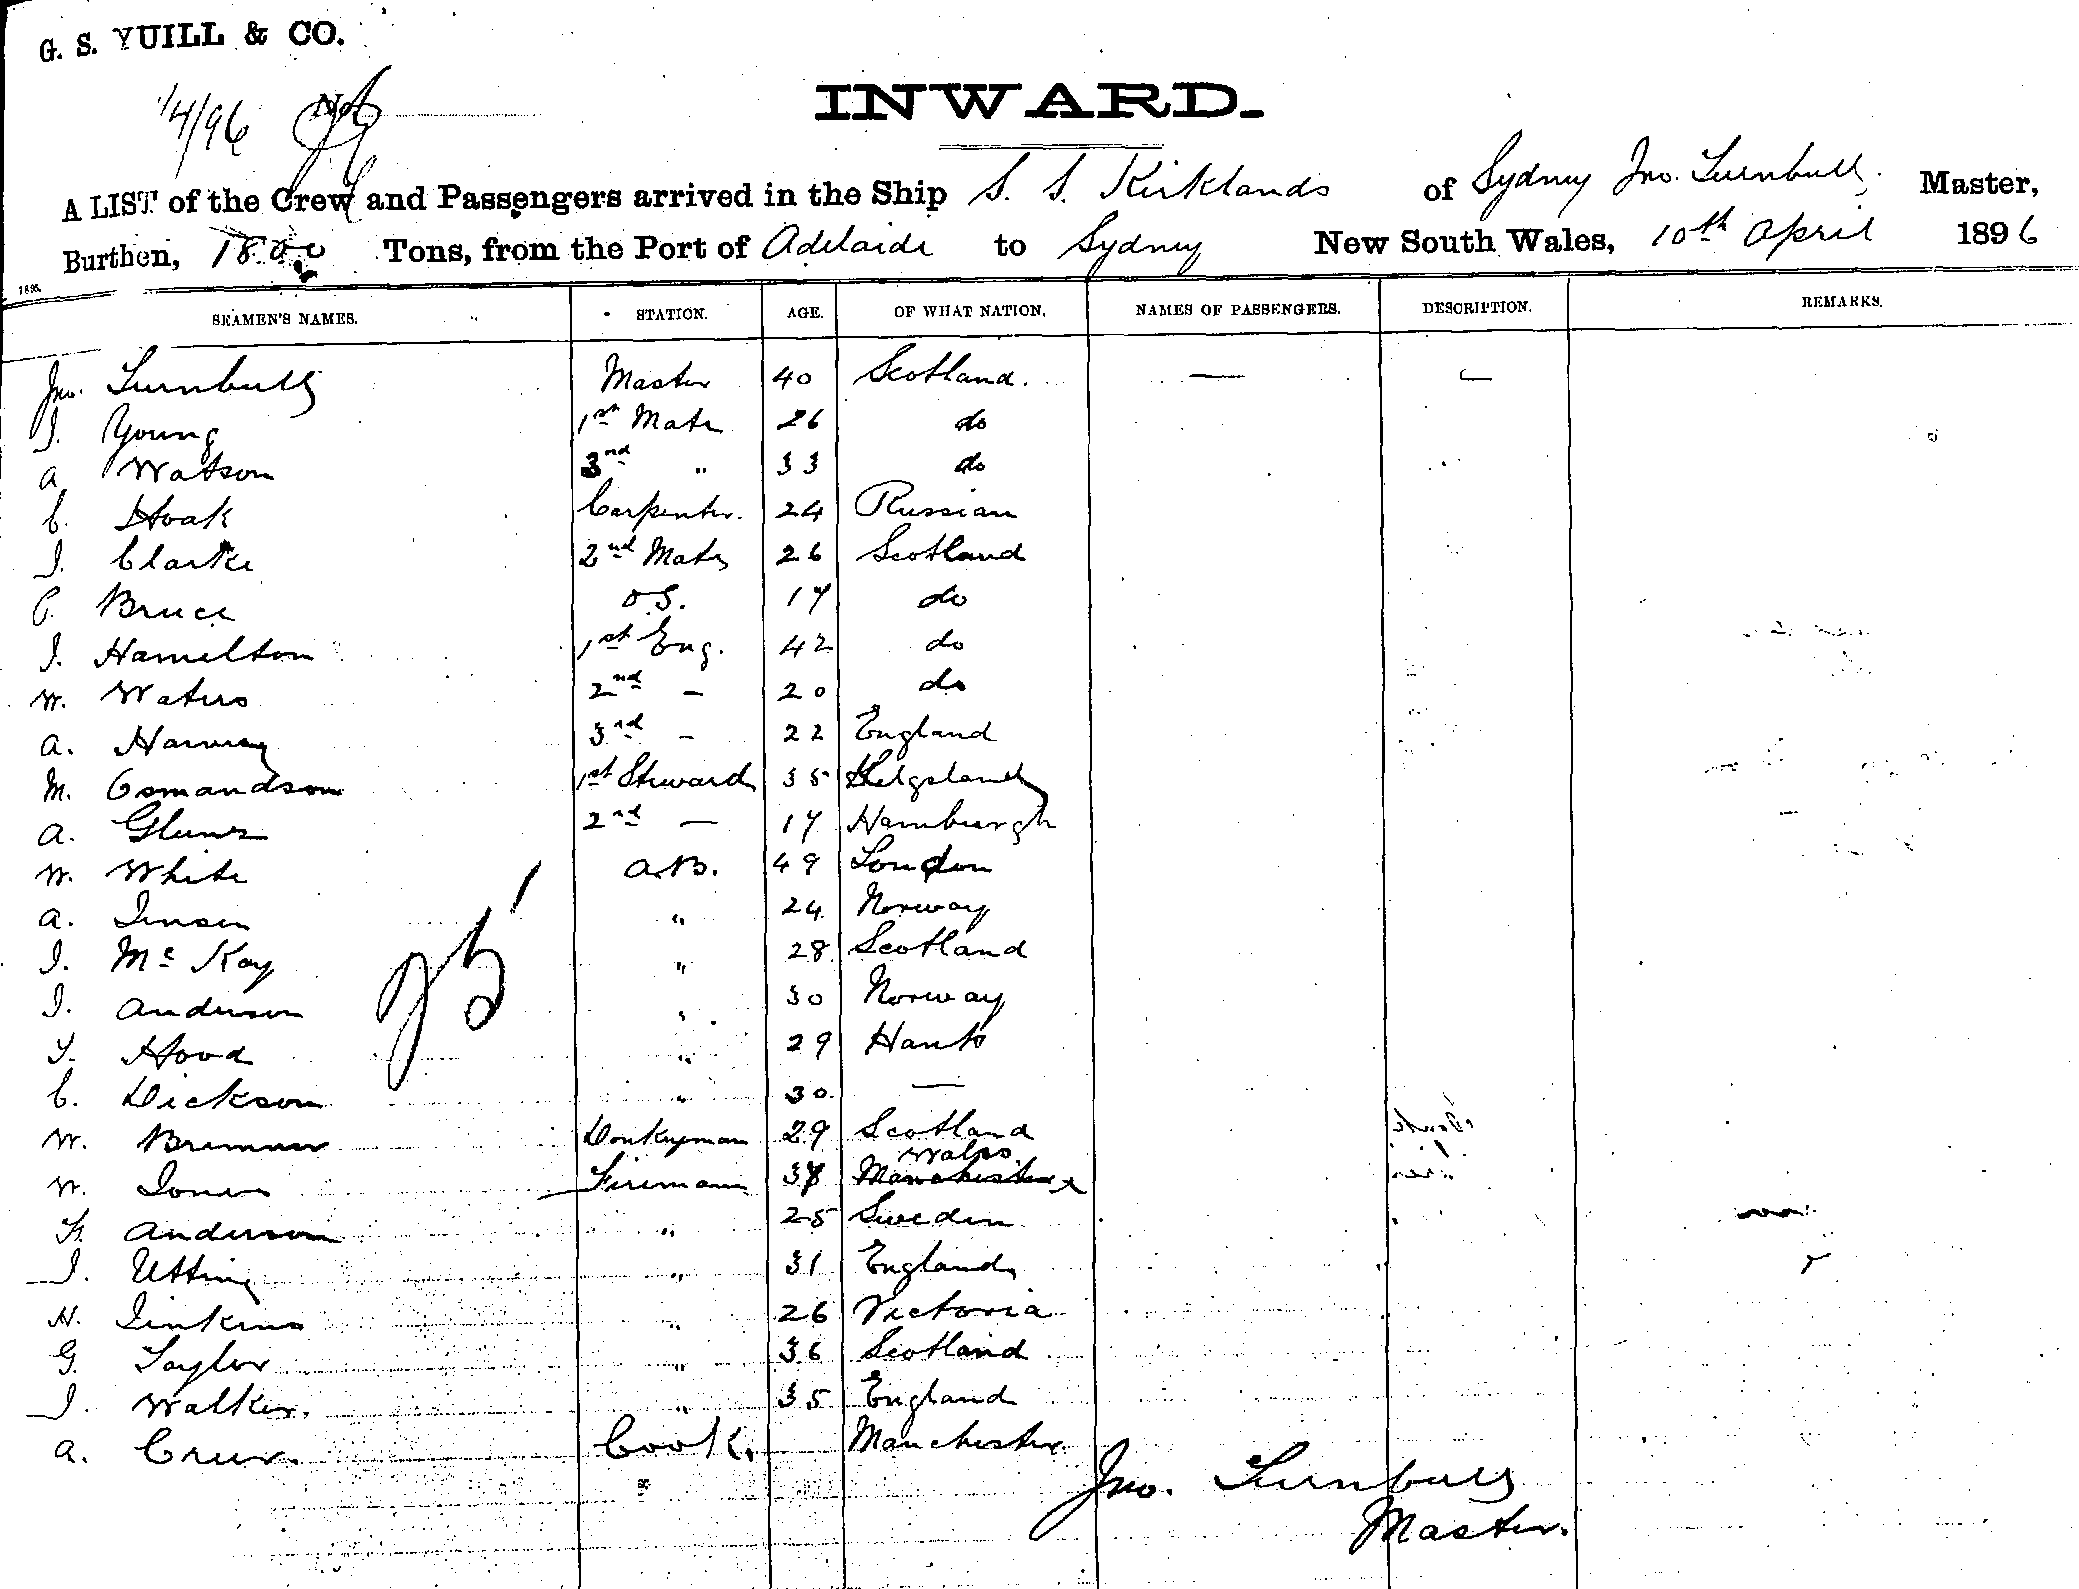 G. S. YUILL & CO.
1/4/96 No.
INWARD.
A LIST of the Crew and Passengers arrived in the Ship S. S. Kirklands of Sydney Jno. Turnbull. Master,
Burthen, 1800 Tons, from the Port of Adelaide to Sydney New South Wales, 10th April 1896
1895.
SEAMEN'S NAMES. STATION. AGE. OF WHAT NATION. NAMES OF PASSENGERS. DESCRIPTION. REMARKS.
Jno. Turnbull Master 40 Scotland. — —
J. Young 1st Mate 26 do
A Watson 3rd " 33 do
C. Hoak Carpenter. 24 Russian
J. Clarke 2nd Mate 26 Scotland
C. Bruce O.S. 17 do
J. Hamelton 1st Eng. 42 do
W. Waters 2nd – 20 do
A. Harvey 3rd – 22 England
M. Osmandson 1st Steward 35
A. 2nd — 17 Hamburgh
W. White A.B. 49 London
A. Jensen " 24 Norway
J. Mc Kay " 28 Scotland
J. Anderson " 30 Norway
Hood " 29 Hants
C. Dickson " 30. —
W. Bremner Donkeyman 29 Scotland
Wales
W. Jones Fireman 37 Manchester
Anderson " 25 Sweden
J. Utting " 31 England
H. Jenkins " 26 Victoria
G. Taylor " 36 Scotland
J. Walker. " 35 England
A. Crew. Cook. Manchester
25
Jno. Turnbull
Master.